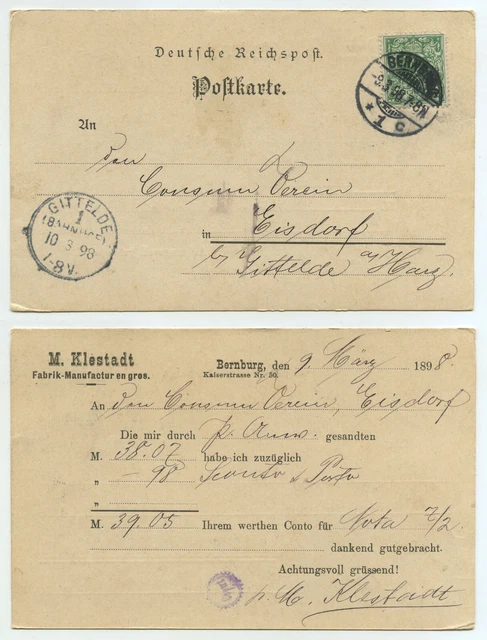 Deutsche Reichspost.
Postkarte.
BERNB
9.3.98.7-8N
* 1 c
An
den
Consum Verein
in Eisdorf
b/ Gittelde a/Harz.
GITTELDE
1
(BAHNHOF)
10 3 98
7-8V.
M. Klestadt
Fabrik-Manufactur en gros.
Bernburg, den 9. März 1898.
Kaiserstrasse Nr. 50.
An den Consum Verein, Eisdorf
Die mir durch p. Anw. gesandten
M. 38.07 habe ich zuzüglich
„ — 98 Sconto & Porto
„
M. 39.05 Ihrem werthen Conto für Nota 7/2
dankend gutgebracht.
Achtungsvoll grüssend!
p. M. Klestadt